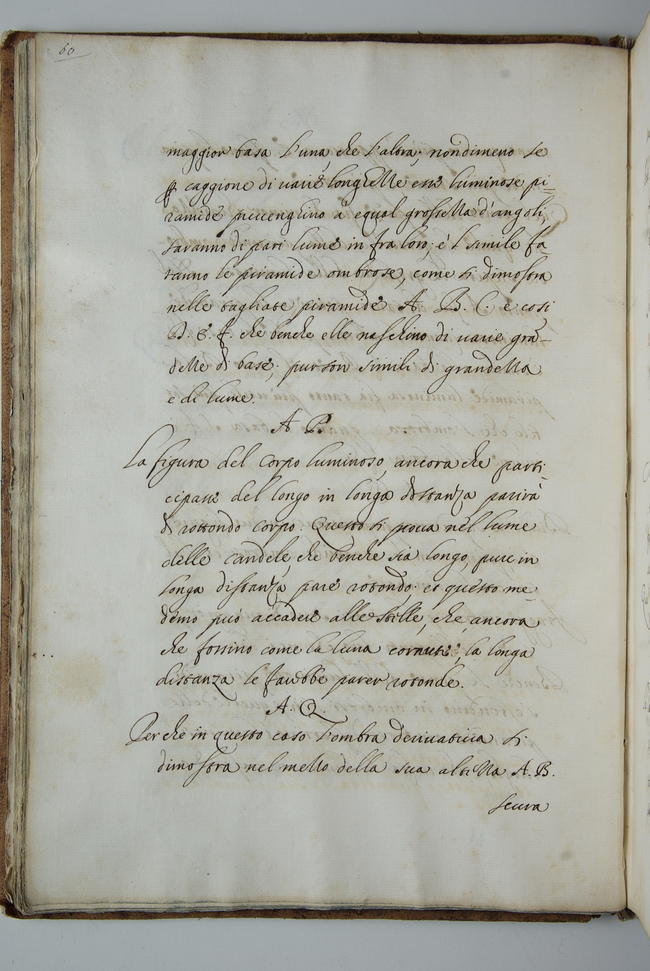 60
maggior basa l'una, che l'altra; nondimeno se
caggione di varie longhezze esse luminose pi-
ramide pervenghino à equal grossezza d'angoli,
saranno di pari lume in fra loro; e 'l simile fa
ranno le piramide ombrose, come si dimostra
nelle tagliate piramide A. B. C. e cosi
D. E. F. che benche elle naschino di varie gra-
dezze di base; pur son simili di grandezza
e di lume.
A P.
La figura del corpo luminoso, ancora che parti-
cipasse del longo in longa distanza parirà
di rottondo corpo. Questo si prova nel lume
delle candele, che benche sia longo, pure in
longa distanza pare rotondo; et questo me-
demo può accadere alle stelle, che ancora
che fossino come la luna cornute, la longa
distanza le farebbe parer rotonde.
A. Q.
Per che in questo caso l'ombra derivativa si
dimostra nel mezzo della sua altezza A. B.
scura